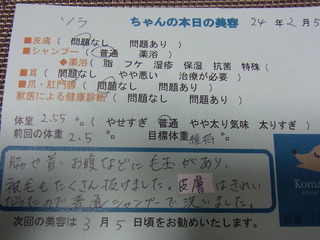 ソラ ちゃんの本日の美容 24年2月5
■皮膚（ 問題なし 問題あり ）
■シャンプー（ 普通 薬浴 ）
◆薬浴（ 脂 フケ 湿疹 保湿 抗菌 特殊（
■耳（ 問題なし やや悪い 治療が必要 ）
■爪・肛門腺（ 問題なし 問題あり ）
獣医による健康診断（ 問題なし 問題あり ）
体重 2.55（ やせすぎ 普通 やや太り気味 太りすぎ ）
前回の体重 2.5 目標体重 維持
脇や首・お腹などに毛玉があり、
被毛もたくさん抜けました。皮層はきれい
だったので普通シャンプーで洗いました。
次回の美容は 3月5日頃をお勧めいたします。
Koma